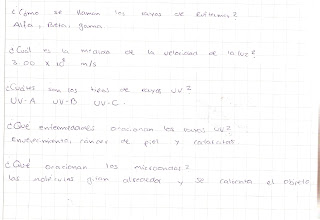 ¿Como se llaman los rayos de
Alfa, Beta, gama.
¿Cuál es la medida de la velocidad de la luz?
3.00 x 10⁸ m/s
¿Cuáles son los tipos de rayos UV?
UV-A UV-B UV-C.
¿Qué enfermedades ocacionan los rayos UV?
Envejecimiento, cancer de piel y cataratas
¿Qué ocacionan las microondas?
las moléculas giran alrededor y se calienta el objeto